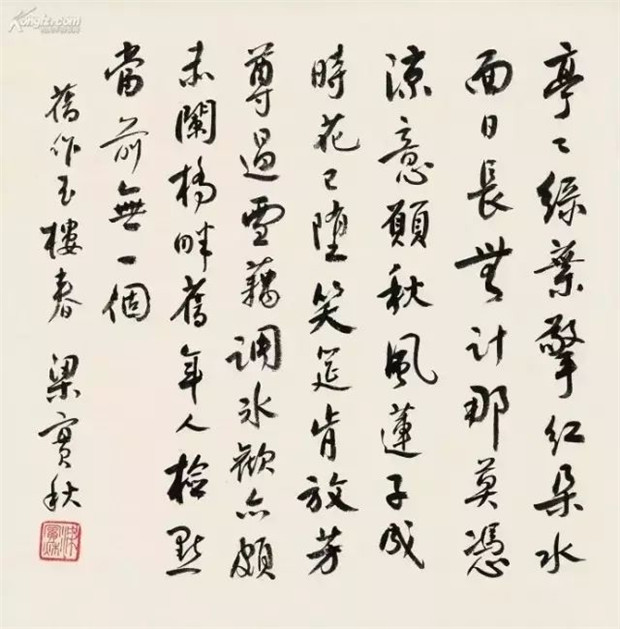 亭〻綠葉擎紅朵水
面日長無計那莫憑
涼意願秋風蓮子成
時花已墮笑筵肯放芳
尊過雪藕調冰歡亦頗
未闌橋畔舊年人檢點
當前無一個
舊作玉樓春 梁實秋
梁實秋
Kongfz.com